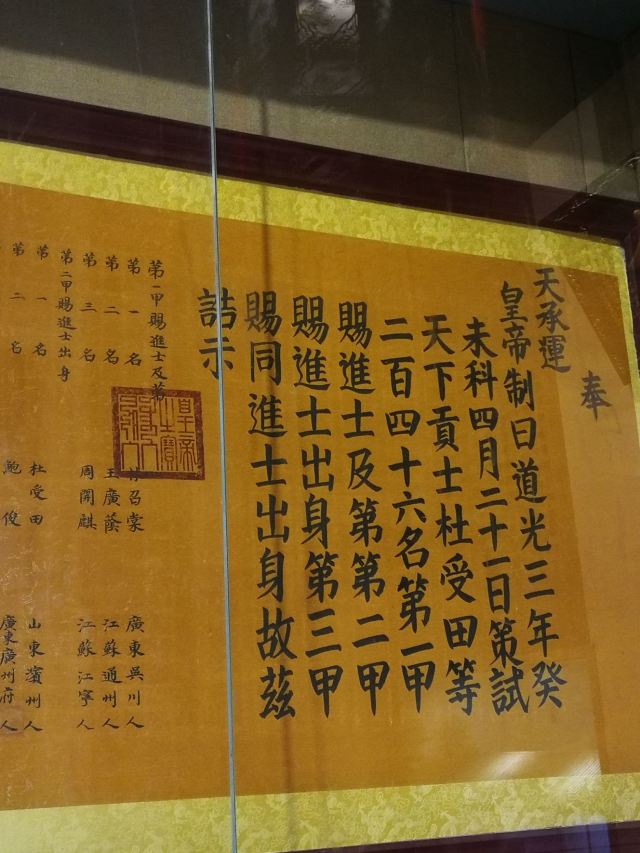 奉
天承運
皇帝制曰道光三年癸
未科四月二十一日策試
天下貢士杜受田等
二百四十六名第一甲
賜進士及第第二甲
賜進士出身第三甲
賜同進士出身故茲
誥示
第一甲賜進士及第
第一名 召棠 廣東吳川人
第二名 王廣蔭 江蘇通州人
第三名 周開麒 江蘇江寧人
第二甲賜進士出身
第一名 杜受田 山東濱州人
第二名 鮑俊 廣東廣州府人
皇帝之寶